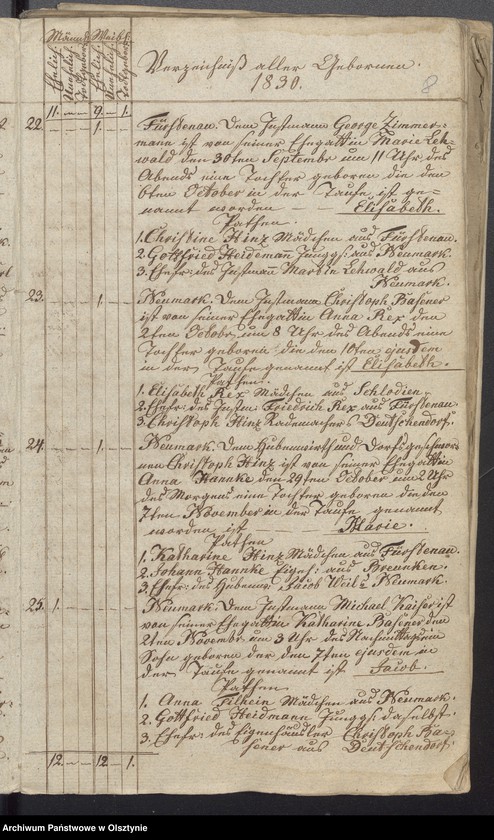 Männl. Weibl.
Ehelich. Unehelich. Todtgeboren. Ehelich. Unehelich. Todtgeboren.
Verzeichniß aller Gebornen.
1830.
8
11. — — 9. — 1.
22. 1. Fürstenau. Dem Instmann George Zimmer-
mann ist von seiner Ehegattin Marie Leh-
wald den 30ten Septembr um 11 Uhr des
Abends eine Tochter geboren die den
6ten October in der Taufe ist ge-
nannt worden Elisabeth.
Pathen.
1. Christine Hinz Mädchen aus Fürstenau.
2. Gottfried Heidemann Jungg: aus Neumark.
3. Ehefr: des Instmann Martin Lehwald aus
Neumark.
23. 1. Neumark. Dem Instmann Christoph Basener
ist von seiner Ehegattin Anna Rex den
2ten Octobr um 8 Uhr des Abends eine
Tochter geboren die den 10ten ejusdem
in der Taufe genannt ist Elisabeth.
Pathen.
1. Elisabeth Rex Mädchen aus Schlodien
2. Ehefr: des Instm Friedrich Rex aus Fürstenau.
3. Christoph Hinz Rademacher Deutschendorf.
24. 1. Neumark. Dem Hubenwirth und Dorfsgeschwor-
nen Christoph Hinz ist von seiner Ehegattin
Anna Hannke den 29ten October um 2 Uhr
des Morgens eine Tochter geboren die den
7ten November in der Taufe genannt
worden ist Marie.
Pathen
1. Katharine Hinz Mädchen aus Fürstenau.
2. Johann Hannke aus
3. Ehefr: des Hubenw: Jacob Weiß Neumark.
25. 1. Neumark. Dem Instmann Michael Kaiser ist
von seiner Ehegattin Katharine Basener den
2ten Novembr um 3 Uhr des Nachmittags ein
Sohn geboren der den 7ten ejusdem in
der Taufe genannt ist Jacob.
Pathen
1. Anna Mädchen aus Neumark.
2. Gottfried Heidmann Jungg: daselbst.
3. Ehefr: des Eigenhäusler Christoph Ba-
sener aus Deutschendorf.
12. — — 12 — 1.
Archiwum Państwowe w Olsztynie